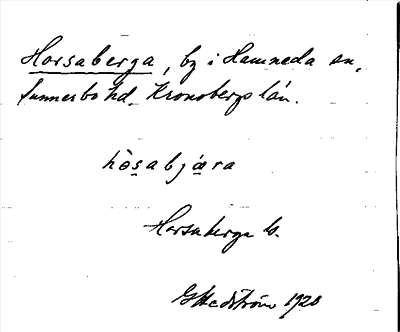 Horsaberga, by i Hamneda sn,
Sunnerbo hd. Kronobergs län.
hòsabjæra
Horsaberga b.
G Hedström 1920